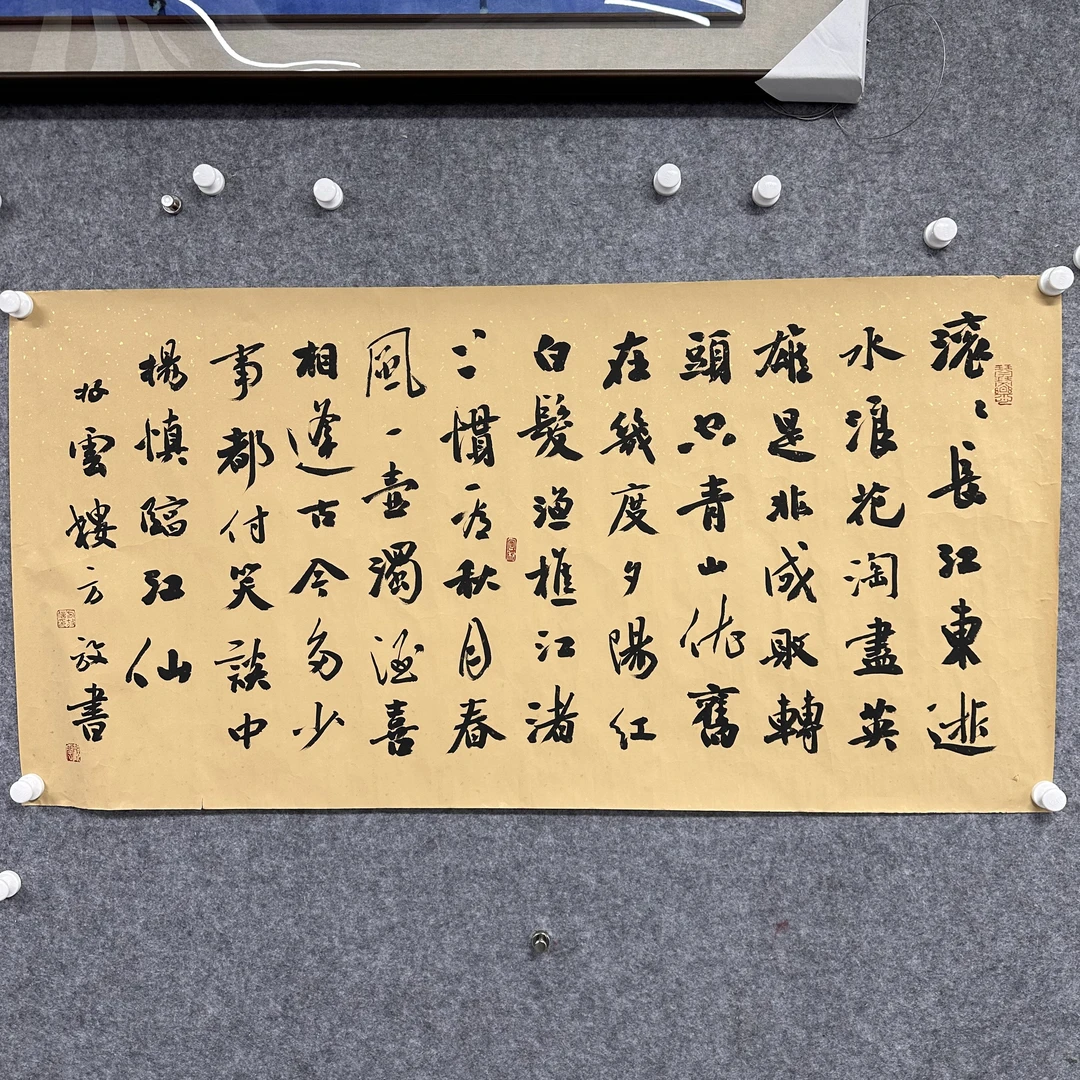 滚〻長江東逝
水浪花淘盡英
雄是非成敗轉
頭空青山依舊
在幾度夕陽紅
白髮漁樵江渚
上慣看秋月春
風一壺濁酒喜
相逢古今多少
事都付笑談中
楊慎臨江仙
雲樓方書